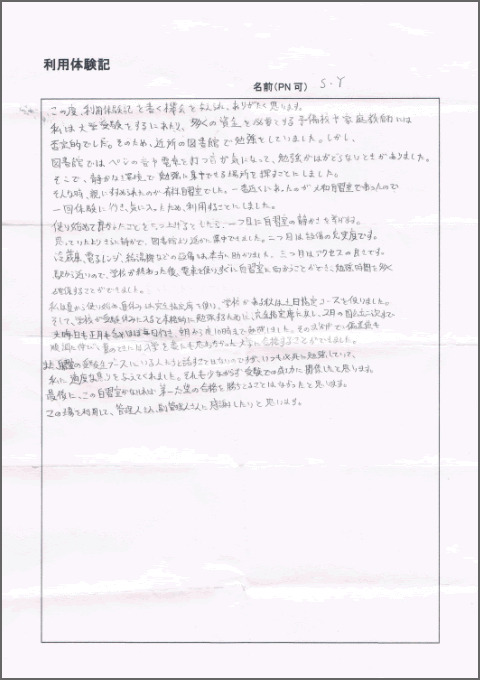 利用体験記
名前(PN可) S.Y
この度、利用体験記を書く機会を与えられ、ありがたく思います。
私は大学受験をするにあたり、多くの資金を必要とする予備校や家庭教師には
否定的でした。そのため、近所の図書館で勉強をしていました。しかし、
図書館ではペンの音や電卓を打つ音が気になって、勉強がはかどらないときがありました。
そこで、静かな環境で勉強に集中できる場所を探すことにしました。
そんな時、親にすすめられたのが有料自習室でした。一番近くにあったのが 自習室であったので
一回体験に行き、気に入ったため、利用することにしました。
使い始めて良かったことを三つ上げるとしたら、一つ目に自習室の静かさを挙げる。
思ってたよりさらに静かで、図書館より遥かに集中できました。二つ目は設備の充実度です。
冷蔵庫、電子レンジ、給湯機などの設備は本当に助かりました。三つ目はアクセスの良さです。
駅から近いので、学校が終わった後、電車を使わずに自習室に向かうことができ、勉強時間を多く
確保することができました。
私は夏から使い始め、夏休みは完全指定席を使い、学校がある秋は土日指定コースを使いました。
そして、学校が受験休みに入ると本格的に勉強するために、完全指定席に戻し、2月の国公立二次まで
大晦日も正月も含めほぼ毎日行き、朝から夜10時まで勉強しました。その過程で偏差値も
順調に伸びて、夏のときには入学を 大学に合格することができました。
また、自習室の ブースにいる人たちと話すことはないのですが、いつも必死に勉強していて、
私に適度な焦りを与えてくれました。それも少なからず受験での成功に関係したと思います。
最後に、この自習室がなければ第一志望の合格を勝ちとることはなかったと思います。
この場を利用して、管理人さん、副管理人さんに感謝したいと思います。